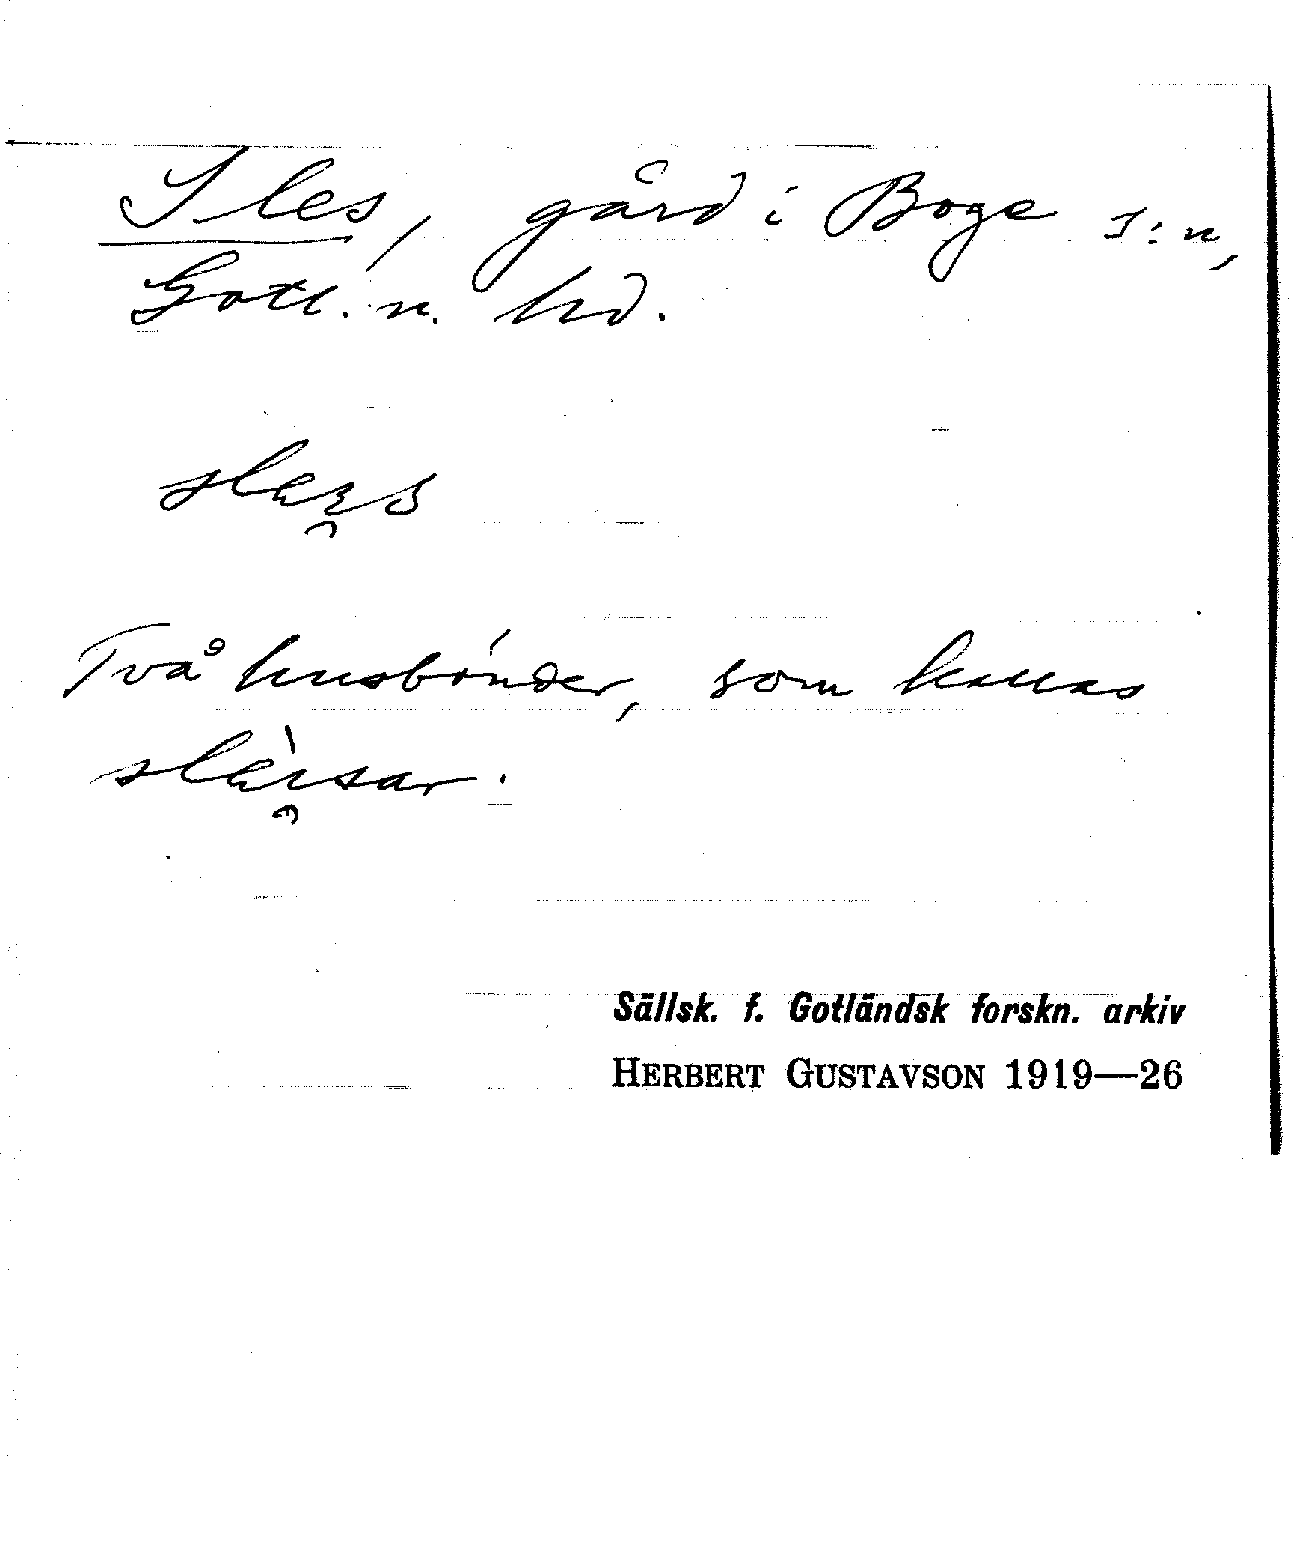 Sles, gård i Boge s:n,
Gotl. n. hd.
slaı̯s
Två husbönder, som kallas
slàı̯sar.
Sällsk. f. Gotländsk forskn. arkiv
HERBERT GUSTAVSON 1919—26